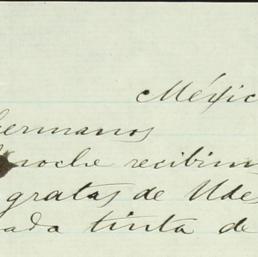 Méxic
hermanos
noche recibim
gratas de Udes
ada tinta de